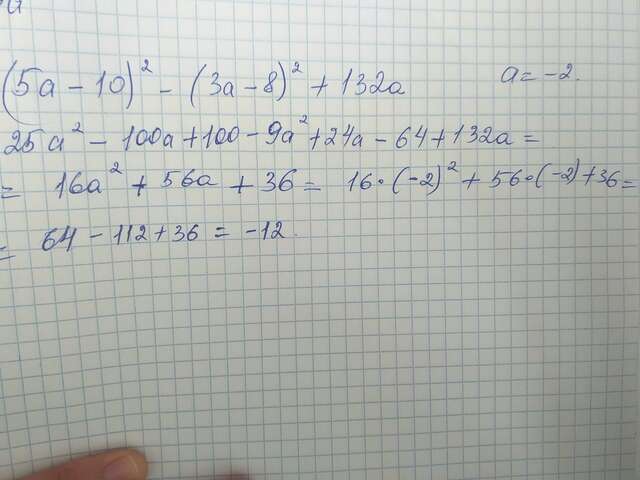 (5a - 10)² - (3a - 8)² + 132a a = -2.
25a² - 100a + 100 - 9a² + 24a - 64 + 132a =
= 16a² + 56a + 36 = 16·(-2)² + 56·(-2) + 36 =
= 64 - 112 + 36 = -12.